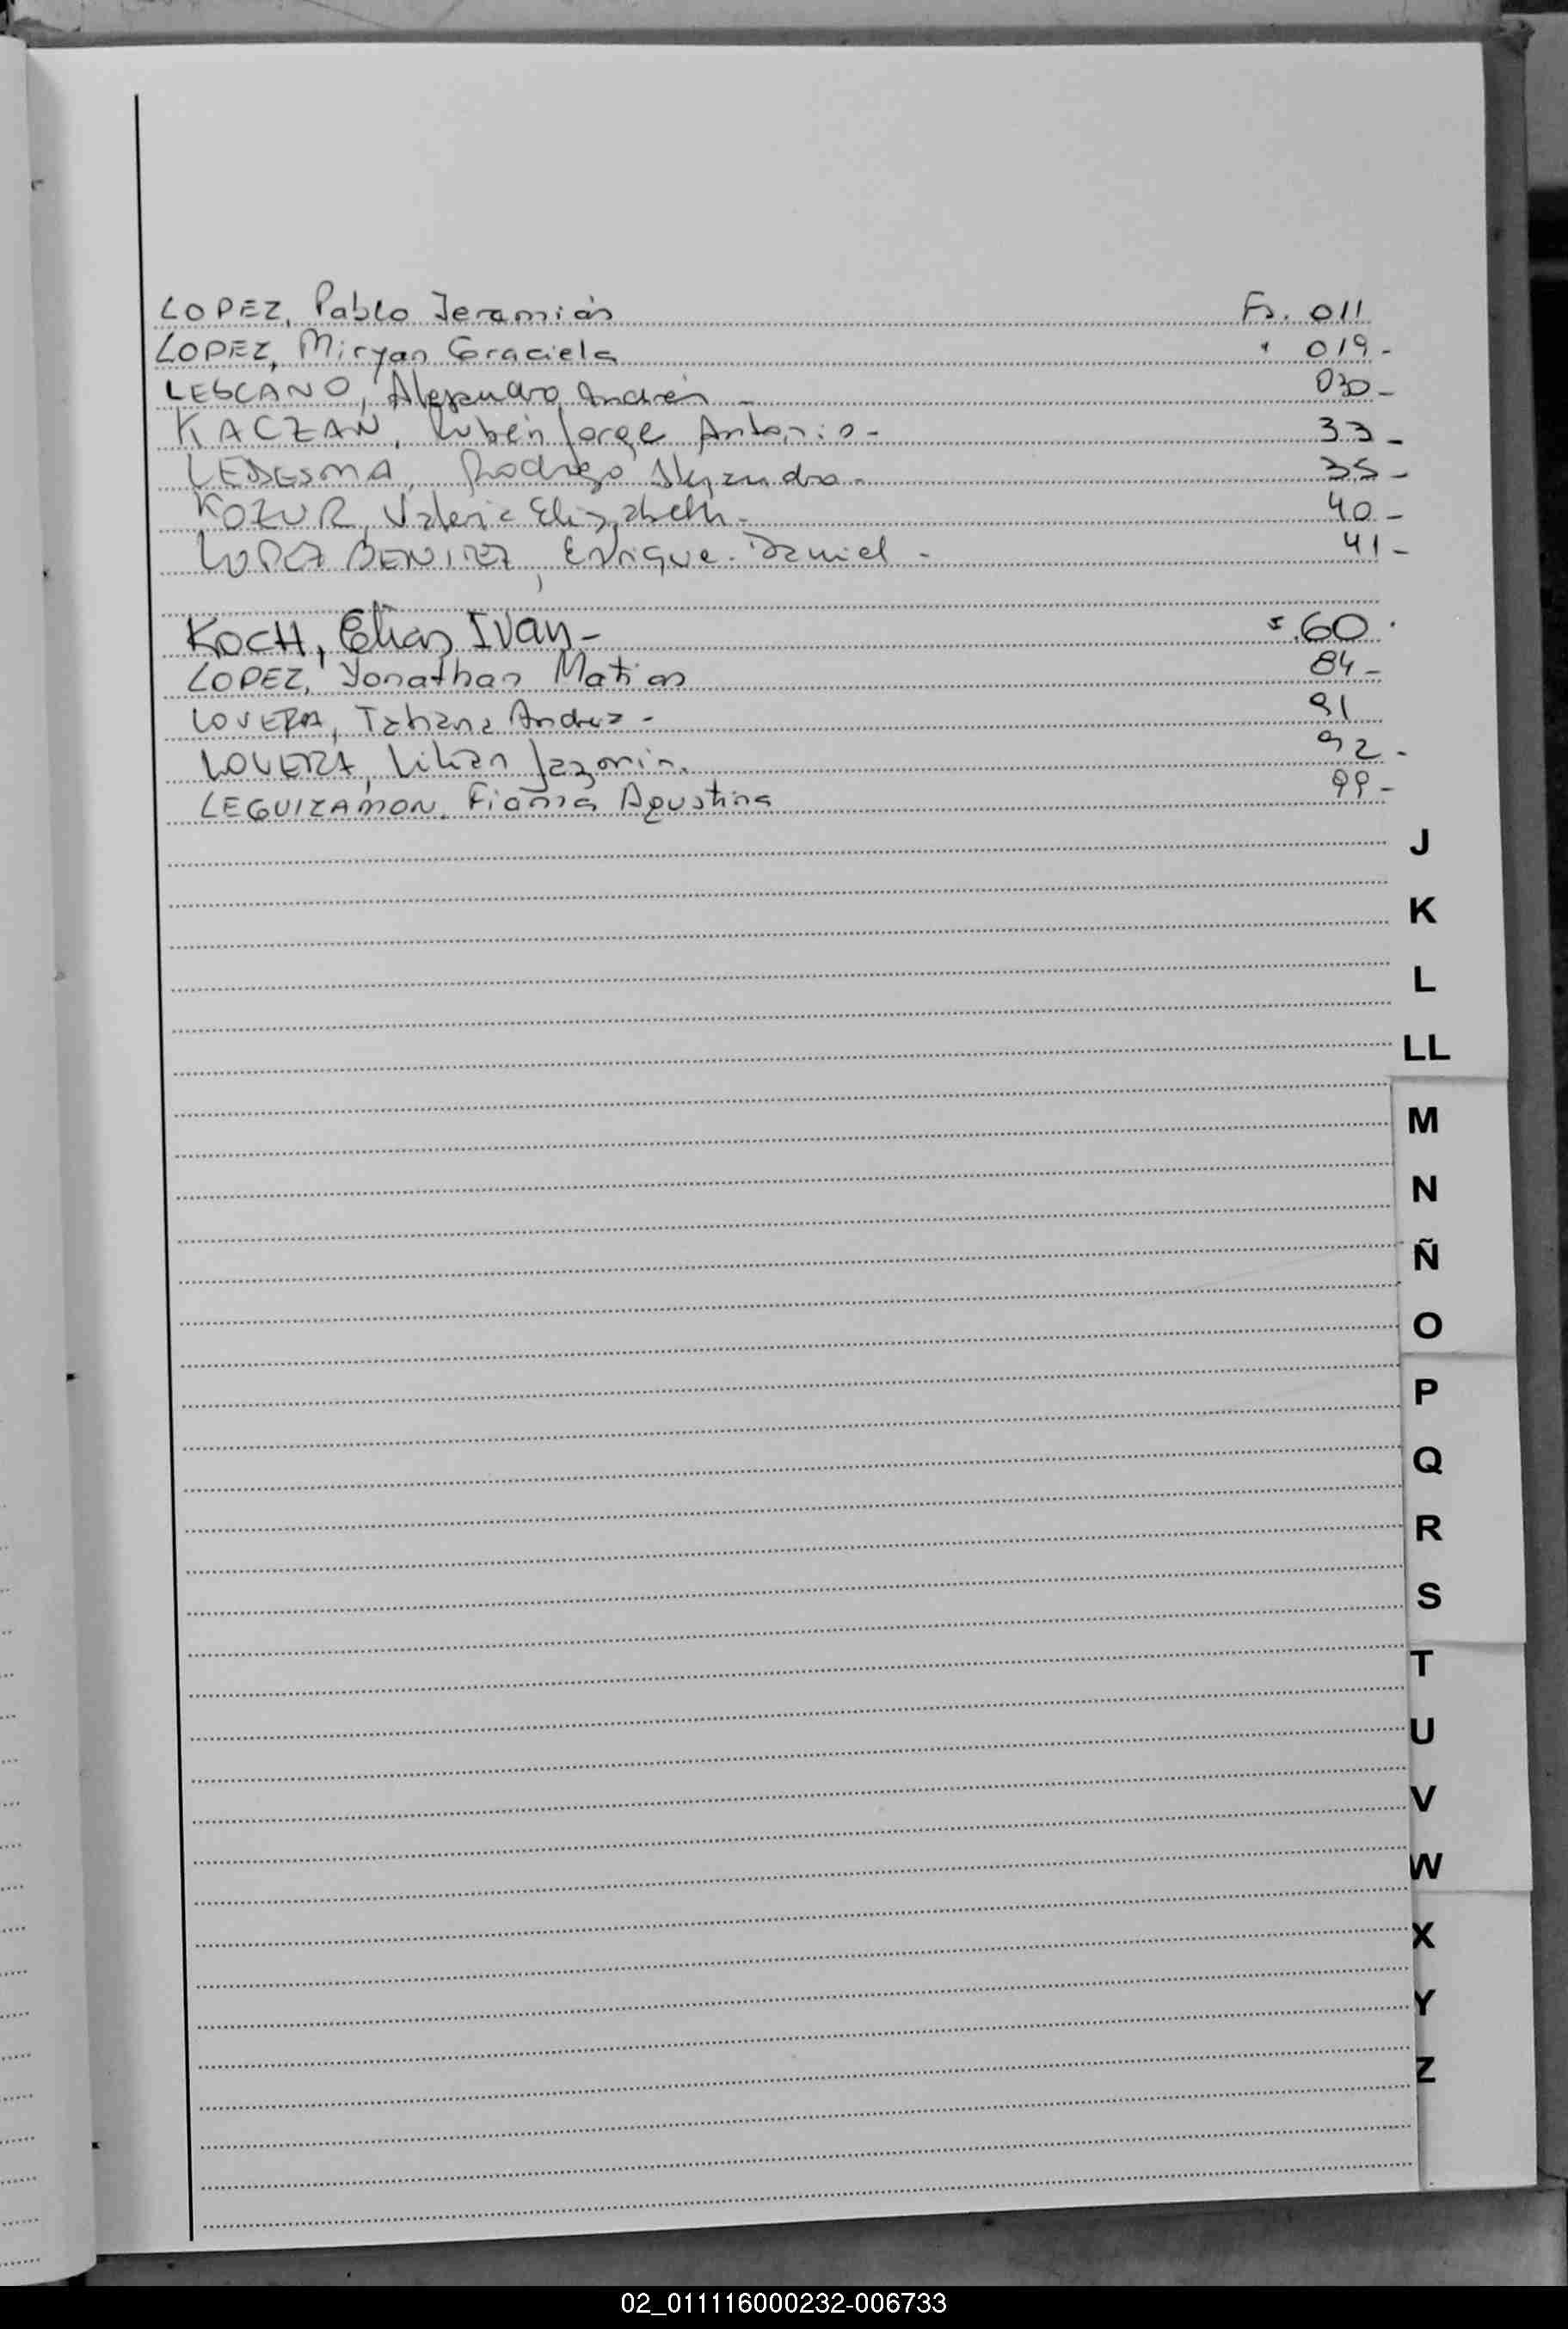 LOPEZ, Pablo Jeramiás Fs. 011
LOPEZ, Miryan Graciela " 019-
LESCANO, Alejandro Andrés - 030-
KACZAN, Rubén Jorge Antonio- 33-
LEDESMA, Rodrigo Alejandro- 35-
KOZUR, Valeria Elizabeth- 40-
LOPEZ BENITEZ, Enrique Daniel- 41-
KOCH, Elias Iván- 60
LOPEZ, Jonathan Matias 84-
LOVERA, Tatiana Andrea- 91
LOVERA, Lilian 92-
LEGUIZAMON, Fiama Agustina 99-
J
K
L
LL
M
N
Ñ
O
P
Q
R
S
T
U
V
W
X
Y
Z
02_011116000232-006733